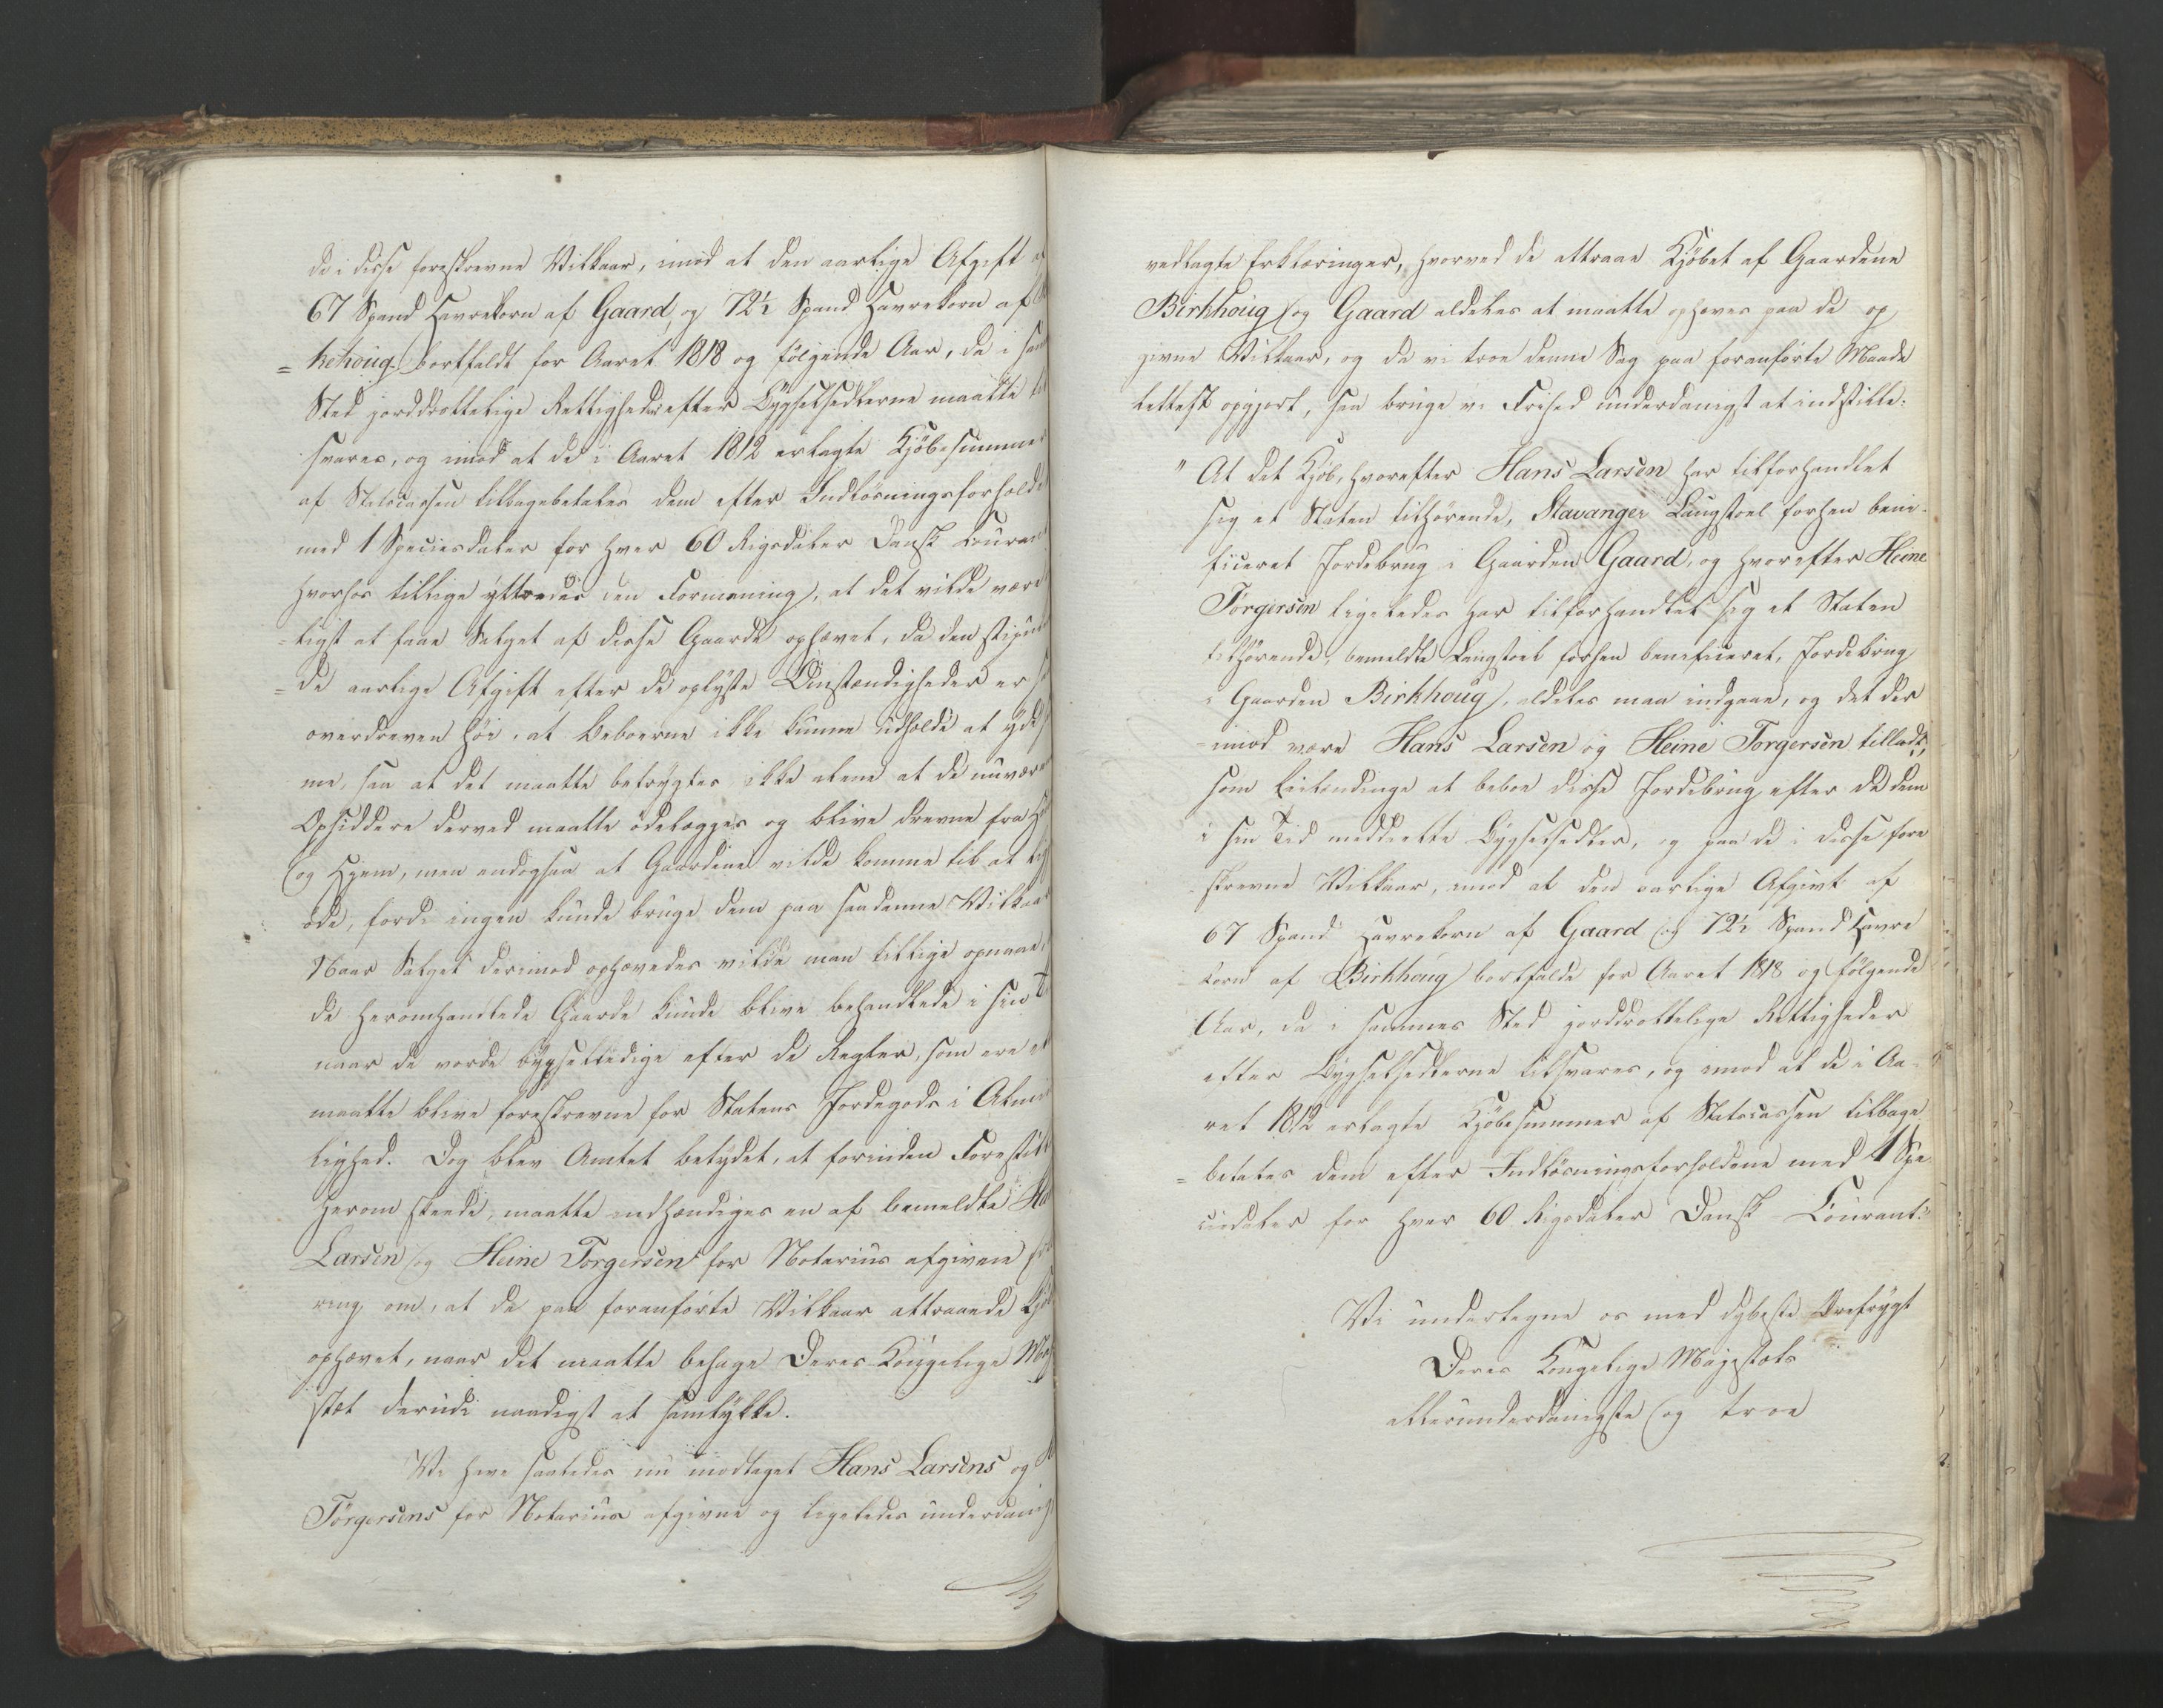 de i disse foreskrevne Vilkaar, imod at den aarlige Afgift af
67 Spand Havrekorn af Gaard, og 72½ Spand Havrekorn af
=kehoug bortfaldt for Aaret 1818 og følgende Aar, da i
Sted jorddrottelige Rettigheder efter Bygselsedlerne maatte
svares, og imod at de i Aaret 1812 erlagte Kjöbesummer
af Statscassen tilbagebetales dem efter Indlösningsforholdet
med 1 Speciesdaler for hver 60 Rigsdaler Dansk Courant
hvorhos tillige yttredes den Formening, at det vilde være
=ligst at faae Salget af disse Gaarde ophævet, da den
=de aarlige Afgift efter de oplyste Omstændigheder er
overdreven höi, at Beboerne ikke kunne udholde at
me, saa at det maatte befrygtes ikke alene at de nuværende
Opsiddere derved maatte ödelægges og blive drevne fra
og Hjem, men endogsaa at Gaardene vilde komme til at
öde, fordi ingen kunde bruge dem paa saadanne Vilkaar
Naar Salget derimod ophævedes vilde man tillige opnaae,
de heromhandlede Gaarde kunde blive behandlede i sin
naar de vorde bygselledige efter de Regler, som ere
maatte blive foreskrevne for Statens Jordegods i Almin
lighed. Dog blev Amtet betydet, at forinden Forestill
herom skeede, maatte indhændiges en af bemeldte
Larsen og Heine Torgersen for Notarius afgiven
ring om, at de paa foranförte Vilkaar attraaede
ophævet, naar det maatte behage Deres Kongelige Maje
stæt derudi naadigst at samtykke.
Vi have saaledes nu modtaget Hans Larsens og
Törgersens for Notarius afgivne og ligeledes underdanigst
vedlagte Erklæringer, hvorved de attraae Kjöbet af Gaardene
Birkhoug og Gaard aldeles at maatte ophæves paa de op
givne Vilkaar, og da vi troe denne Sag paa foranförte Maade
lettest opgjort, saa bruge vi Frihed underdanigst at indstille:
"At det Kjöb, hvorefter Hans Larsen har tilforhandlet
sig et Staten tilhørende, Stavanger Laugstoel forhen bene-
ficeret Jordebrug i Gaarden Gaard, og hvorefter Heine
Törgersen ligeledes har tilforhandlet sig et Staten
tilhörende, bemeldte Laugstoel forhen beneficeret, Jordebrug
i Gaarden Birkhoug, aldeles maa indgaae, og det der
=imod være Hans Larsen og Heine Torgersen tilladt,
som Leilændinge at beboe disse Jordebrug efter de dem
i sin Tid meddeelte Bygselsedler, og paa de i disse fore
skrevne Vilkaar, imod at den aarlige Afgivt af
67 Spand Havrekorn af Gaard og 72½ Spand Havre
korn af Birkhoug bortfalde for Aaret 1818 og følgende
Aar, da i sammes Sted jorddrottelige Rettigheder
efter Bygselsedlerne tilsvares, og imod at de i Aa-
ret 1812 erlagte Kjöbesummer af Statscassen tilbage
=betales dem efter Indlösningsforholdene med 1 Spe
ciedaler for hver 60 Rigsdaler Dansk Courant."
Vi undertegne os med dybeste Ærefrygt
Deres Kongelige Majestæts
allerunderdanigste og troe